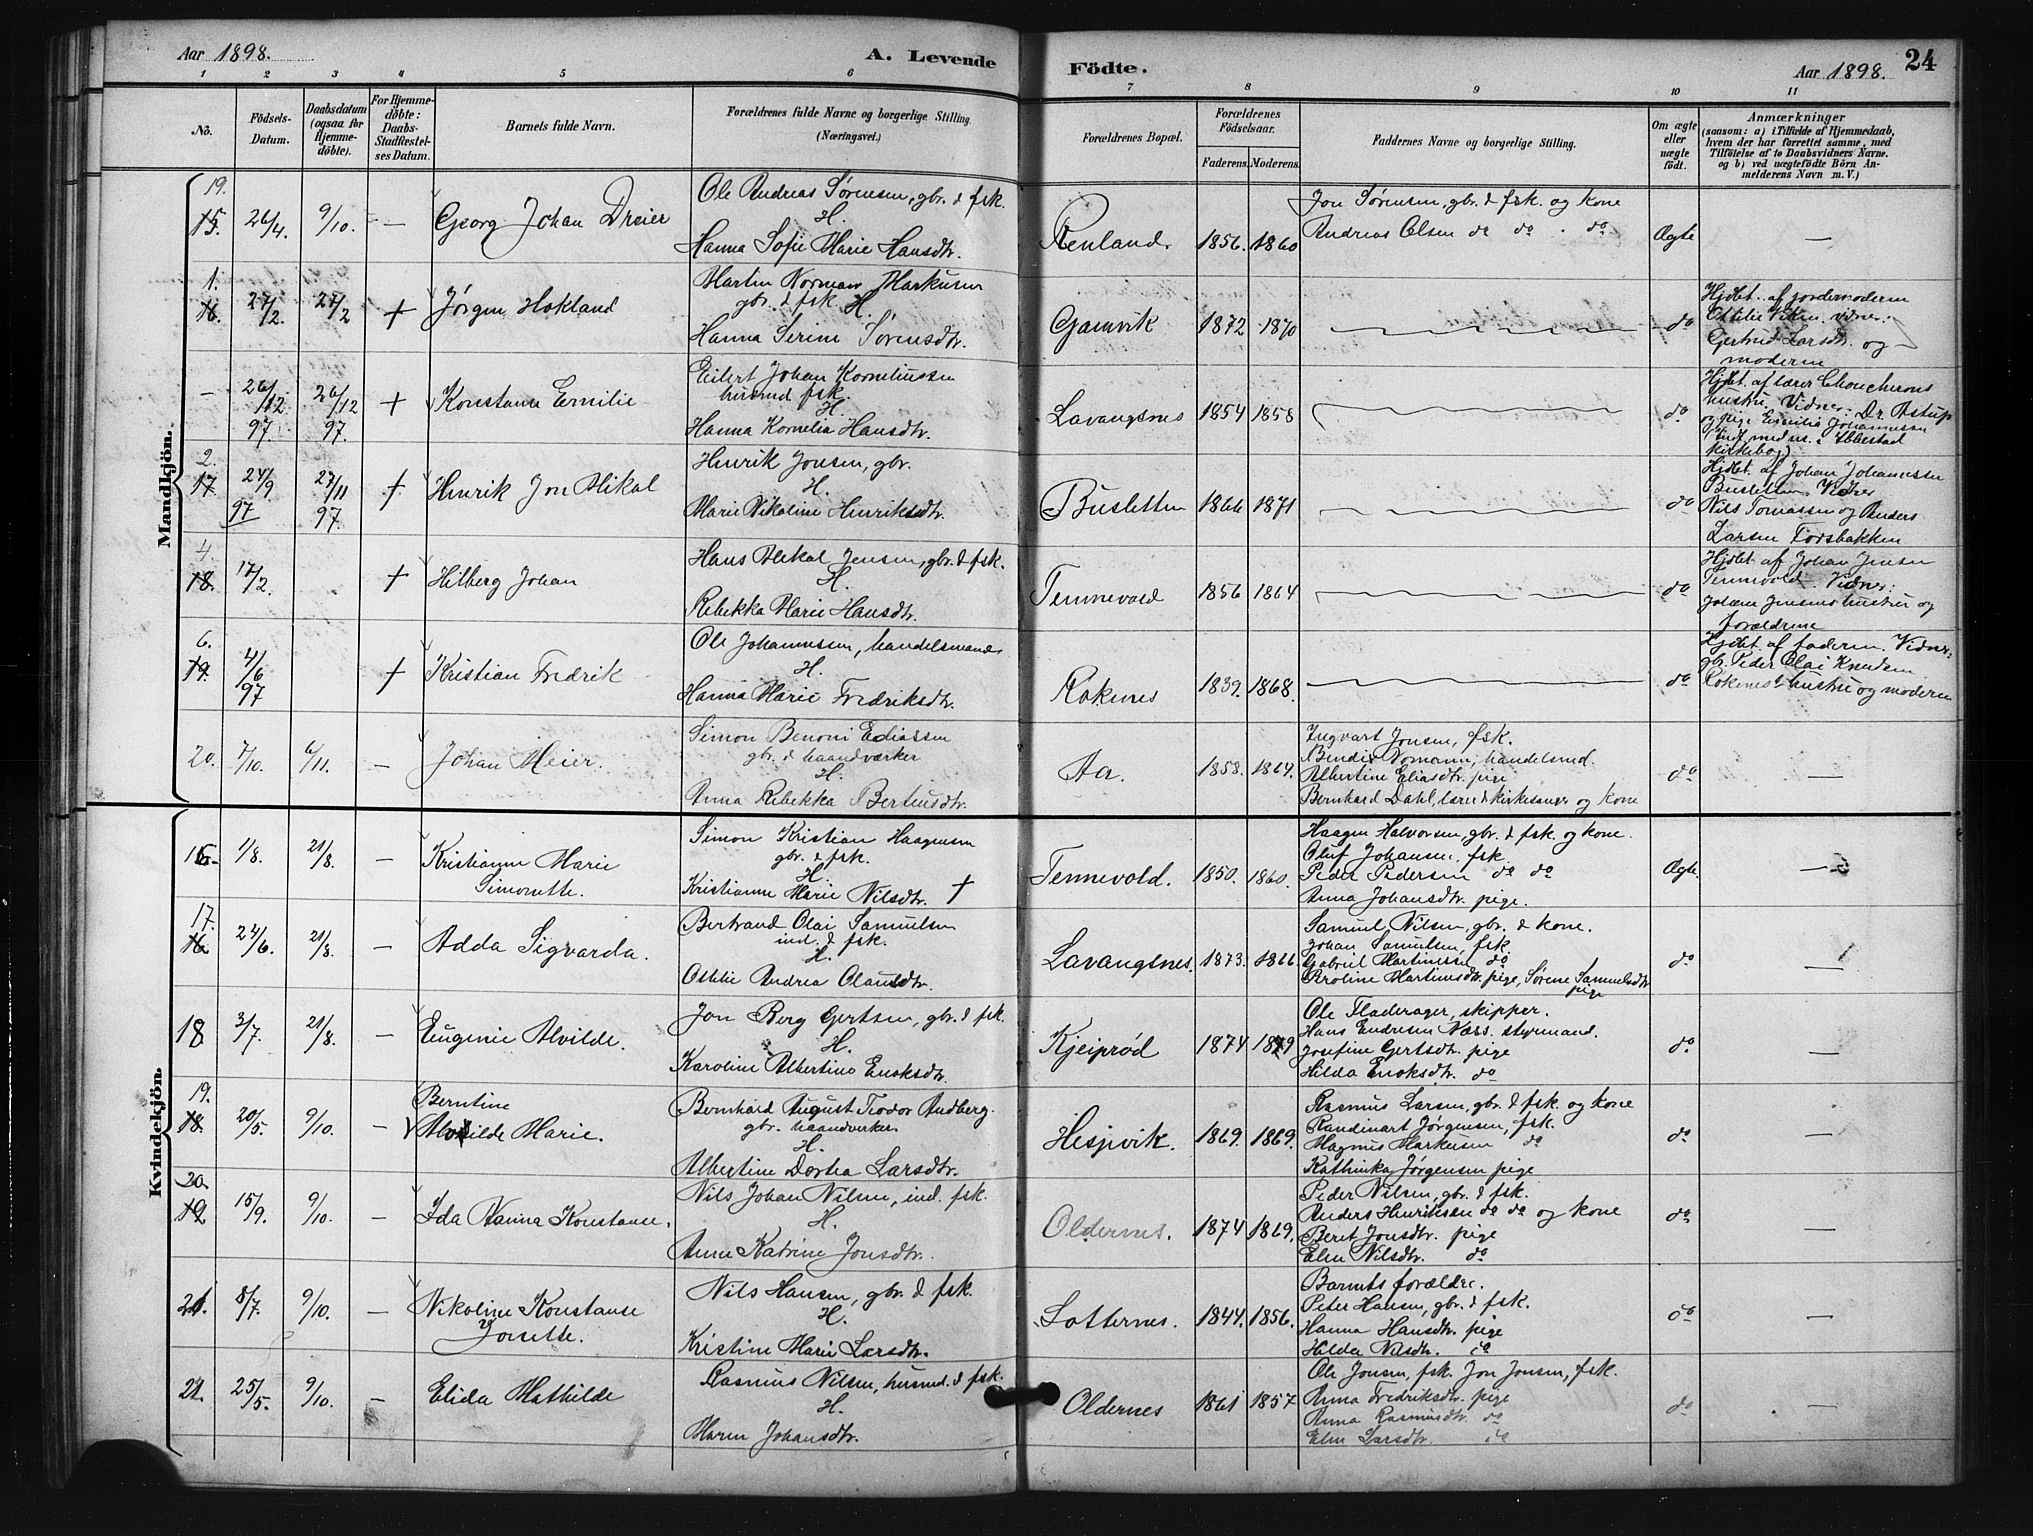 Aar 1898.
A. Levende
Födte.
Aar 1898.
24
1 2 3 4 5 6 7 8 9 10 11
No.
Födsels-Datum.
Daabsdatum (ogsaa for Hjemme-döbte).
For Hjemme-döbte: Daabs-Stadfæstel-ses Datum.
Barnets fulde Navn.
Forældrenes fulde Navne og borgerlige Stilling. (Næringsvei.)
Forældrenes Bopæl.
Forældrenes Födselsaar.
Faderens. Moderens.
Faddernes Navne og borgerlige Stilling.
Om ægte eller uægte födt.
Anmærkninger
(saasom: a) i Tilfælde af Hjemmedaab, hvem der har forrettet samme, med Tilföielse af to Daabsvidners Navne. og b) ved uægtefödte Börn An-melderens Navn m. V.)
Mandkjön.
19.
15. 26/4. 9/10. — Georg Johan Dreier
Ole Andreas Sørensen, gbr. & fsk.
H.
Hanna Sofie Marie Hansdtr.
Renland. 1856. 1860
Jon Sørensen, gbr. & fsk. og kone
Andreas Olsen do do . do
Ægte —
1.
16. 27/2. 27/2 + Jørgen Hokland
Martin Norman Markusen
gbr. & fsk.
H.
Hanna Serine Sørensdtr.
Gamvik 1872 1870
do
Hjdbt. af jordemoderen
Ottilie Viken. vidner:
Gertrud Larsdtr. og
moderen
— 26/12 97 26/12 97. + Konstanse Emilie
Eilert Johan Korneliussen
husmd fsk.
H.
Hanna Kornelia Hansdtr.
Lavangsnes 1854 1858
do
Hjdbt. af lærer
hustru Vidner: Dr. Astup
og pige Emilie Johannesen
Ibbestad
kirkebog)
2.
17 24/9 97 27/11 97. + Henrik Jon Mikal
Henrik Jonsen, gbr.
H.
Marie Nikoline Henriksdtr.
Busletten 1866 1871
do
Hjdbt. af Johan Johannessen
Busletten Vidner
Nils Tomassen og Anders
Larsen Fosbakken
4.
18. 17/2. + Hilberg Johan
Hans Mikal Jensen, gbr. & fsk.
H.
Rebekka Marie Hansdtr.
Tennevold 1856 1864
do
Hjdbt. af Johan Jensen
Tennevold Vidner:
Johan Jensens hustru og
forældrene
6.
19. 4/6 97 + Kristian Fredrik
Ole Johannesen, handelsmand
H.
Hanna Marie Fredriksdtr.
Rokenes 1839. 1868.
do
Hjdbt. af faderen. Vidner:
gb. Peder Olai Knudsen
Rokenes's hustru og moderen
20. 7/10. 6/11. — Johan Meier.
Simon Benoni Eliassen
gbr. & haandværker
H.
Anna Rebekka Bertinsdtr.
Aa. 1858. 1864.
Ingvart Jonsen, fsk.
Bendix Normann, handelsmd.
Albertine Eliasdtr. pige
Bernhard Dahl, lærer & kirkesanger og kone
do —
Kvindekjön.
16. 1/8. 21/8. — Kristianne Marie
Simonette.
Simon Kristian Haagensen
gbr. & fsk.
H.
Kristianne Marie Nilsdtr. +
Tennevold. 1850. 1860.
Haagen Halvorsen, gbr. & fsk. og kone.
Oluf Johansen, fsk.
Peder Pedersen do do
Anna Johansdtr. pige.
Ægte. —
17.
16. 24/6. 21/8. — Adda Sigvarda.
Bertrand Olai Samuelsen
ind. & fsk.
H.
Otilie Andrea Olausdtr.
Lavangsnes. 1873. 1866
Samuel Nilsen, gbr. & kone.
Johan Samuelsen, fsk.
Gabriel Martinsen do
Karoline Martinsdtr. pige, Sørine Samuelsdtr.
pige
do —
18 3/7. 21/8. — Eugenie Alvilde.
Jon Berg Gertsen, gbr. & fsk.
H.
Karoline Albertine Enoksdtr.
Kjeiprød 1874 1879
Ole Fladerager, skipper.
Hans Endresen Næss. styrmand.
Josefine Gertsdtr. pige
Hilda Enoksdtr. do
do —
19.
18. 20/5. 9/10. — Berntine
Alvilde Marie.
Bernhard August Teodor Andberg.
gbr. haandværker
H.
Albertine Dortea Larsdtr.
Hesjevik. 1869. 1869.
Rasmus Larsen, gbr. & fsk. og kone
Randinart Jørgensen, fsk.
Magnus Markusen do
Kathinka Jørgensen pige
do —
20.
19 15/9. 9/10. — Ida Hanna Konstanse.
Nils Johan Nilsen, ind. fsk.
H.
Anne Katrine Jonsdtr.
Oldernes. 1874 1869.
Peder Nilsen, gbr. & fsk.
Anders Henriksen do do og kone
Beret Jonsdtr. pige
Elen Nilsdtr. do
do. —
21. 8/7. 9/10. — Nikoline Konstanse
Josette.
Nils Hansen, gbr. & fsk.
H.
Kristine Marie Larsdtr.
Lotternes. 1844. 1856.
Barnets forældre.
Peter Hansen, gbr. & fsk.
Hanna Hansdtr. pige
Hilda Nilsdtr. do
do —
21. 25/5. 9/10. — Elida Mathilde
Rasmus Nilsen, husmd. & fsk.
H.
Maren Johansdtr.
Oldernes 1861 1857
Ole Jonsen, fsk. Jon Jonsen, fsk.
Anna Fredriksdtr. pige
Anna Rasmusdtr. do
Elen Larsdtr. do
do —